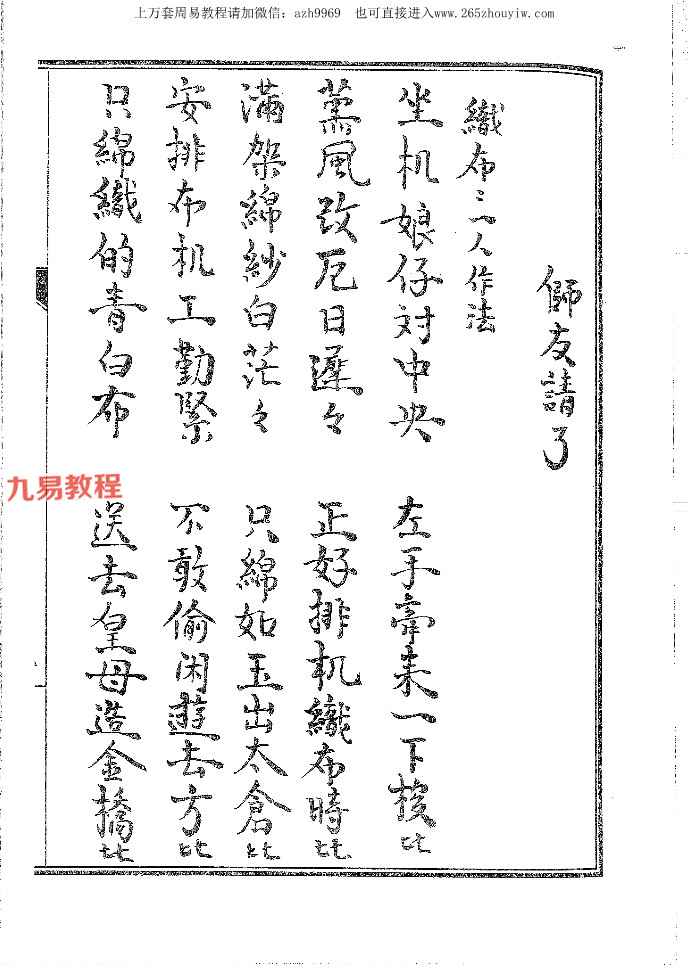 上万套周易教程请加微信：azh9969　也可直接进入www.265zhouyiw.com
師友請了
織布二人作法
坐机娘仔対中央　左手牽来一下梭比
薰風改厄日遲々　正好排机織布時比
滿架綿紗白茫々　只綿如玉出太倉比
安排布机工勤緊　不敢偷闲遊去方比
只綿織的青白布　送去皇母造金橋比
九易教程